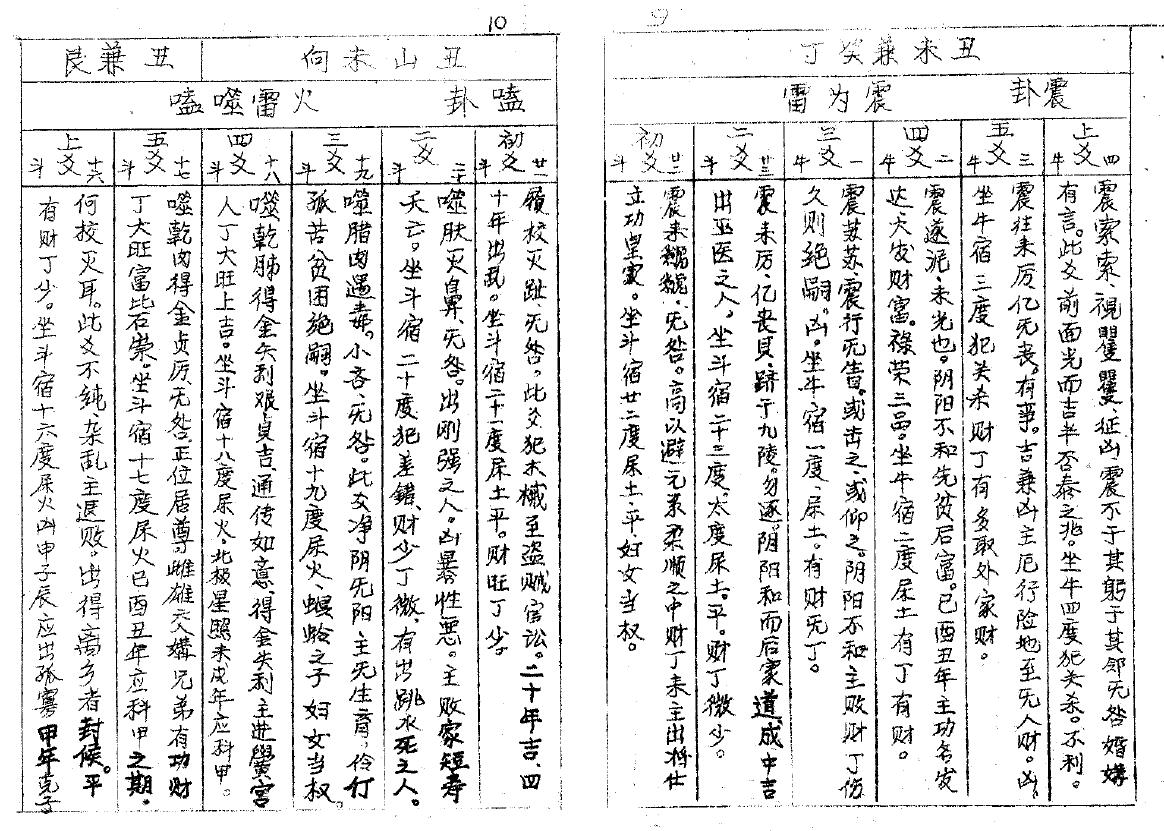 9
丑未兼癸丁
震卦 震为雷
上爻 四 牛
震索索、視矍矍、征凶震不于其躬于其邻无咎婚媾
有言。此爻前面光而吉半否泰之兆。坐牛四度犯关杀。不利。
五爻 三 牛
震往来厉亿无丧。有事。吉兼凶主厄行险地至无人财。凶。
坐牛宿三度犯关杀财丁有多取外家财。
四爻 二 牛
震遂泥未光也。阴阳不和先贫后富。巳酉丑年主功名发
达大发财富。禄荣三品。坐牛宿二度尿土有丁有财。
三爻 一 牛
震苏苏、震行无眚。或击之、或仰之。阴阳不和主败财丁伤
久则绝嗣。凶。坐牛宿一度、尿土。有财无丁。
二爻 廿三 斗
震来厉、亿丧贝、跻于九陵。勿逐。阴阳和而后家道成中吉
出巫医之人。坐斗宿二十三度。太度尿土。平。财丁微少。
初爻 廿二 斗
震来虩虩。无咎。高以避元素柔顺之中财丁未主出将仕
立功皇家。坐斗宿廿二度尿土平妇女当权。
10
丑山未向 丑兼艮
嗑卦 火雷噬嗑
初爻 廿一 斗
屨校灭趾无咎，此爻犯木械至盗贼官讼。二十年吉、四
十年出乱。坐斗宿二十一度尿土平。财旺丁少。
二爻 二十 斗
噬肤灭鼻、无咎。出刚强之人。凶暴性恶。主败家短寿
夭亡。坐斗宿二十度犯差錯、财少丁微、有出跳水死之人。
三爻 十九 斗
噬腊肉遇毒。小吝、无咎。此爻净阴无阳主无生育，伶仃
孤苦贫困绝嗣。坐斗宿十九度尿火螟蛉之子妇女当权。
四爻 十八 斗
噬乾胏得金矢利艰貞吉通传如意、得金矢利、主进黌宫
人丁大旺上吉。坐斗宿十八度尿火。北极星照未戌年应科甲。
五爻 十七 斗
噬乾肉得金贞厉、无咎、正位居尊、雌雄交媾兄弟有功财
丁大旺富比石崇。坐斗宿十七度尿火巳酉丑年应科甲之期。
上爻 十六 斗
何校灭耳。此爻不纯、杂乱主退败。出得离乡者封侯。平
有财丁少。坐斗宿十六度尿火凶申子辰应出孤寡甲年克子